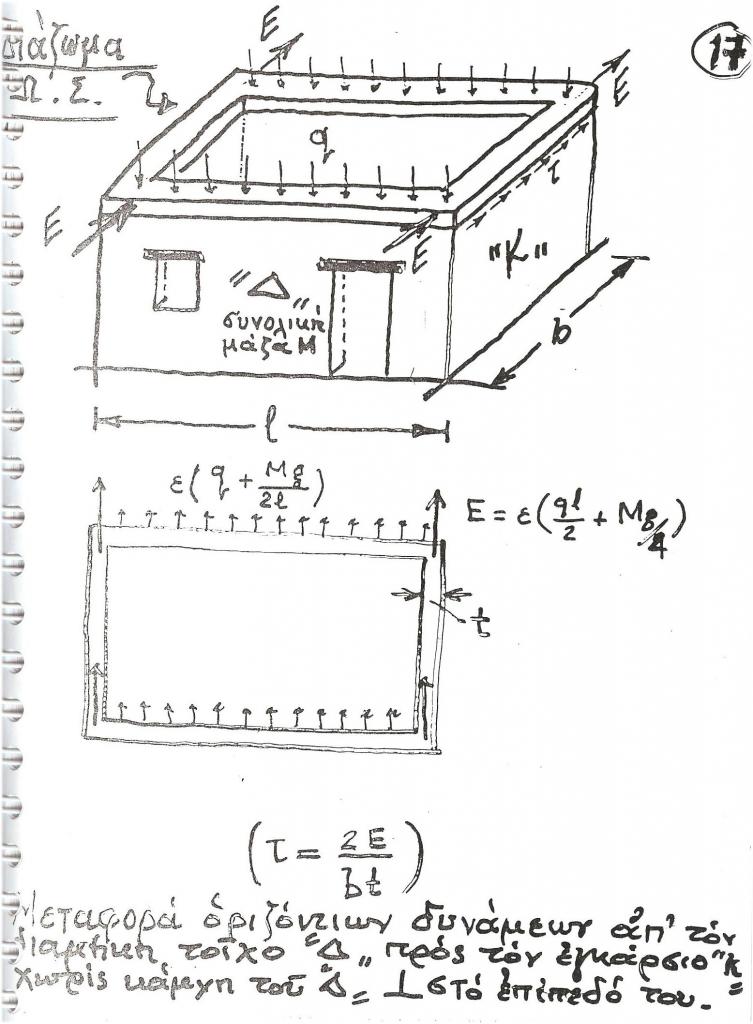 17
διάζωμα
Ω. Σ.
E
E
q
τ
E
E
"K"
"Δ"
συνολική
μάζα M
b
l
ε(q + Mg/2l)
E = ε(ql/2 + Mg/4)
t
(τ = 2E/bt)
Μεταφορά ὁριζόντιων δυνάμεων ἀπ' τόν
διαμήκη τοῖχο "Δ" πρός τόν ἐγκάρσιο "K"
χωρίς κάμψη τοῦ "Δ" ⊥ στό ἐπίπεδό του.